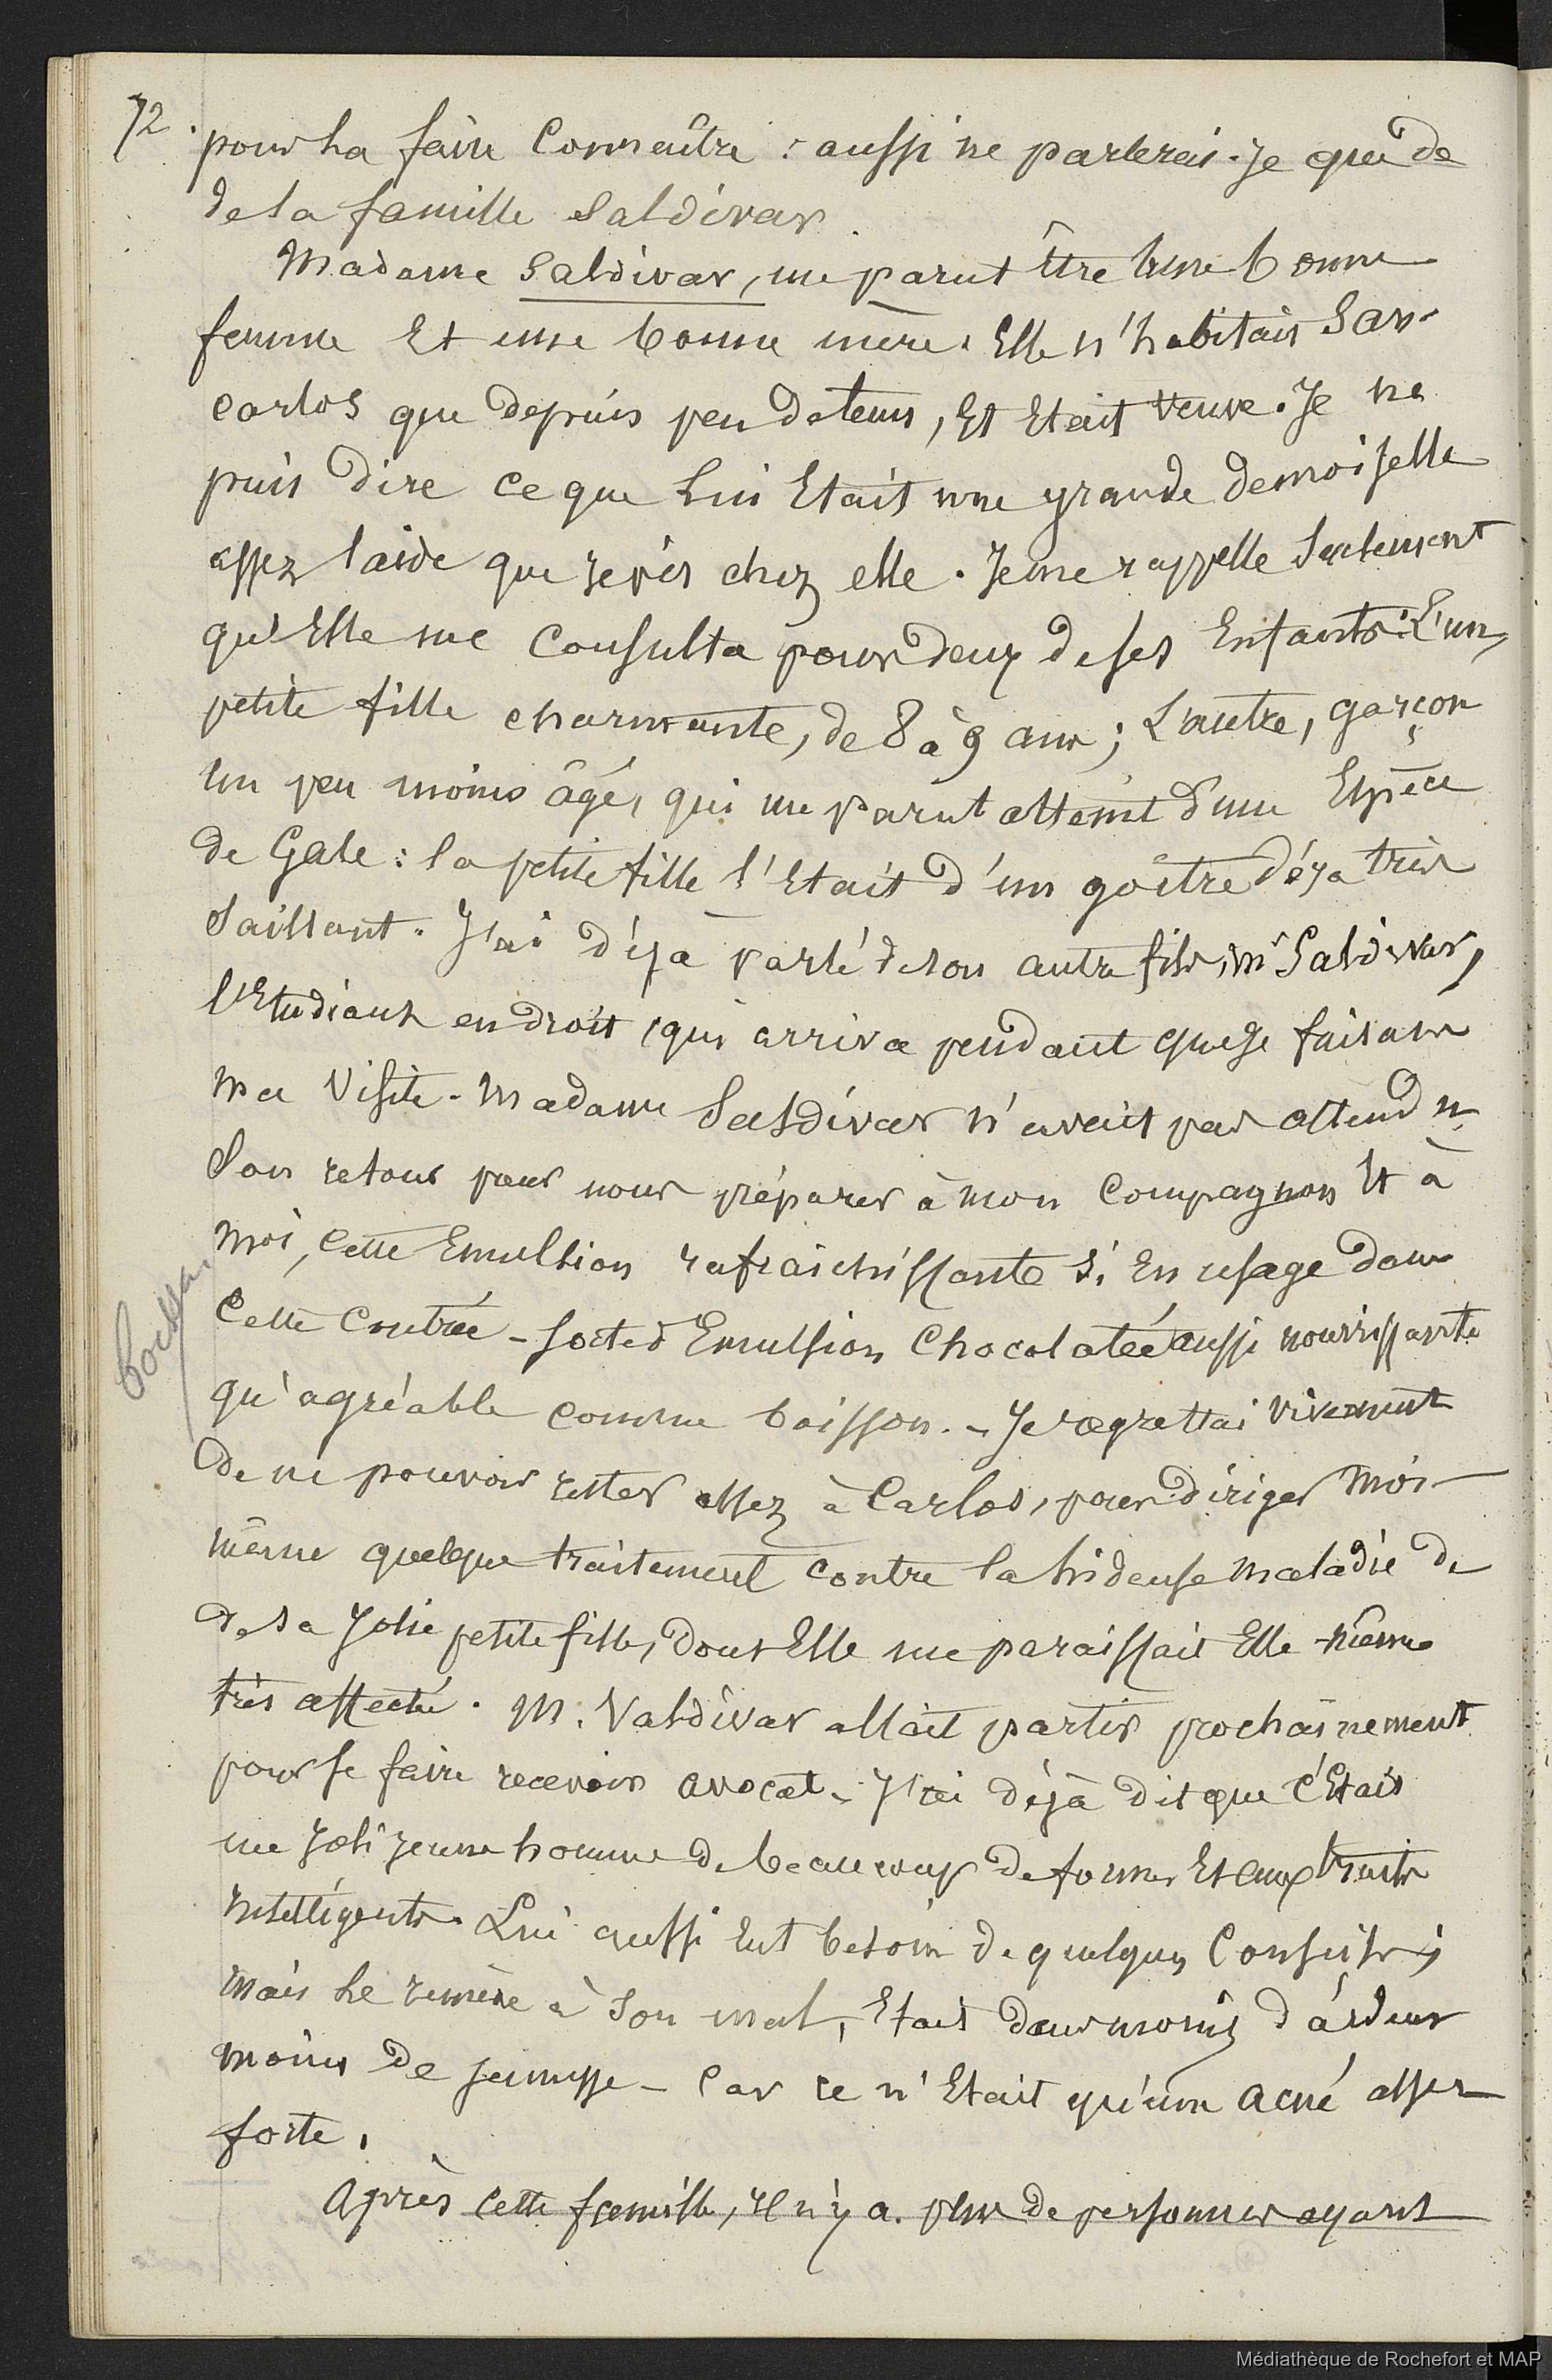 72.
pour la faire connaître : aussi ne parlerai-je que de
de la famille Saldivar.
Madame Saldivar, me parut être une bonne
femme et une bonne mère. Elle n'habitait San-
Carlos que depuis peu de tems, et était veuve. Je ne
puis dire ce que lui était une grande demoiselle
assez laide que je vis chez elle. Je me rappelle seulement
qu'elle me consulta pour deux de ses enfants : L'un,
petite fille charmante, de 8 à 9 ans ; L'autre, garçon
un peu moins âgé, qui me parut atteint d'une espèce
de Gale : la petite fille l'était d'un goître déjà très
saillant. J'ai déjà parlé de son autre fils, Mr Saldivar,
l'Etudiant en droit, qui arriva pendant que je faisais
ma visite. Madame Saldivar n'avait pas attendu
son retour pour nous préparer à mon compagnon et à
moi, cette Emulsion rafraichissante si en usage dans
cette contrée - sorte d'Emulsion chocolatée aussi nourrissante
qu'agréable comme boisson. - Je regrettai vivement
de ne pouvoir rester assez à Carlos, pour diriger moi-
même quelque traitement contre la hideuse maladie de
de sa jolie petite fille, dont elle me paraissait elle-même
très affectée. M. Valdivar allait partir prochainement
pour se faire recevoir avocat. J'ai déjà dit que c'était
un joli jeune homme de beaucoup de formes et aux traits
intelligents. Lui aussi eut besoin de quelques conseils ;
mais le remède à son mal, était dans moins d'ardeur
moins de jeunesse - car ce n'était qu'une acné assez
forte.
Après cette famille, il n'y a plus de personnes ayant
Boisson
Médiathèque de Rochefort et MAP